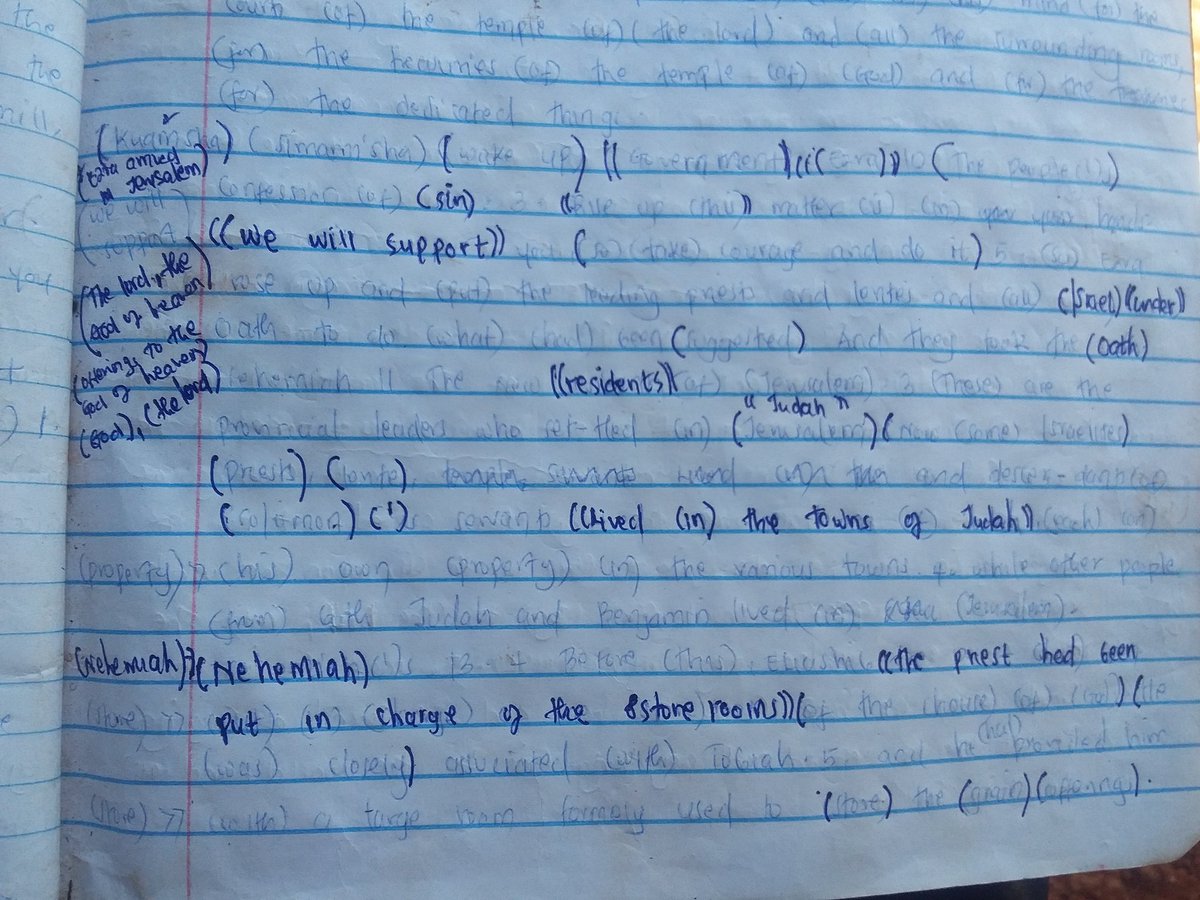 court (of) the temple (of) (the lord) and (all) the surrounding rooms,
(for) the treasuries (of) the temple (of) (God) and (for) the treasuries
(for) the dedicated things
(Kuamsha) (simamisha) (wake up) ((Government)) (((Ezra)) 10 (The people('s))
(Ezra arrived
in Jerusalem)
confession (of) (sin) 3. ((Rise up (this)) matter (is) (in) your
(we will
support) ((We will support)) you (so) (take) courage and do it) 5 (so) Ezra
rose up and (put) the leading priests and levites and (all) (Israel) ((under))
(The lord, the
God of heaven)
Oath to do (what) (had) been (suggested) And they took the (Oath)
(offerings to the
God of heaven)
(God), (the lord)
Nehemiah 11 The new ((residents)) (of) (Jerusalem) 3 (These) are the
"Judah"
provincial leaders who set-tled (in) (Jerusalem) (Now (some) Israelites)
(priests), temple servants and descen-
(Solomon) (')s servants ((Lived (in) the towns of Judah))
(property) >> (his) own (property) (in) the various towns. 4. while other people
(from) both Judah and Benjamin lived (in) (Jerusalem).
(Nehemiah) >> (Nehemiah) (')s 13. 4 Before (this), Eliashib ((the priest had) been
(store) >> put) (in) (charge) of the (store) rooms)) (of the (house) (of) (God)) (He
(was) closely) associated (with) Tobiah. 5. and he (had) provided him
(store) >> (with) a large room formely used to (store) the (grain) (offerings).